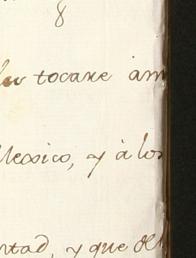 8
tocare am
Mexico, y à los
ntad, y que de